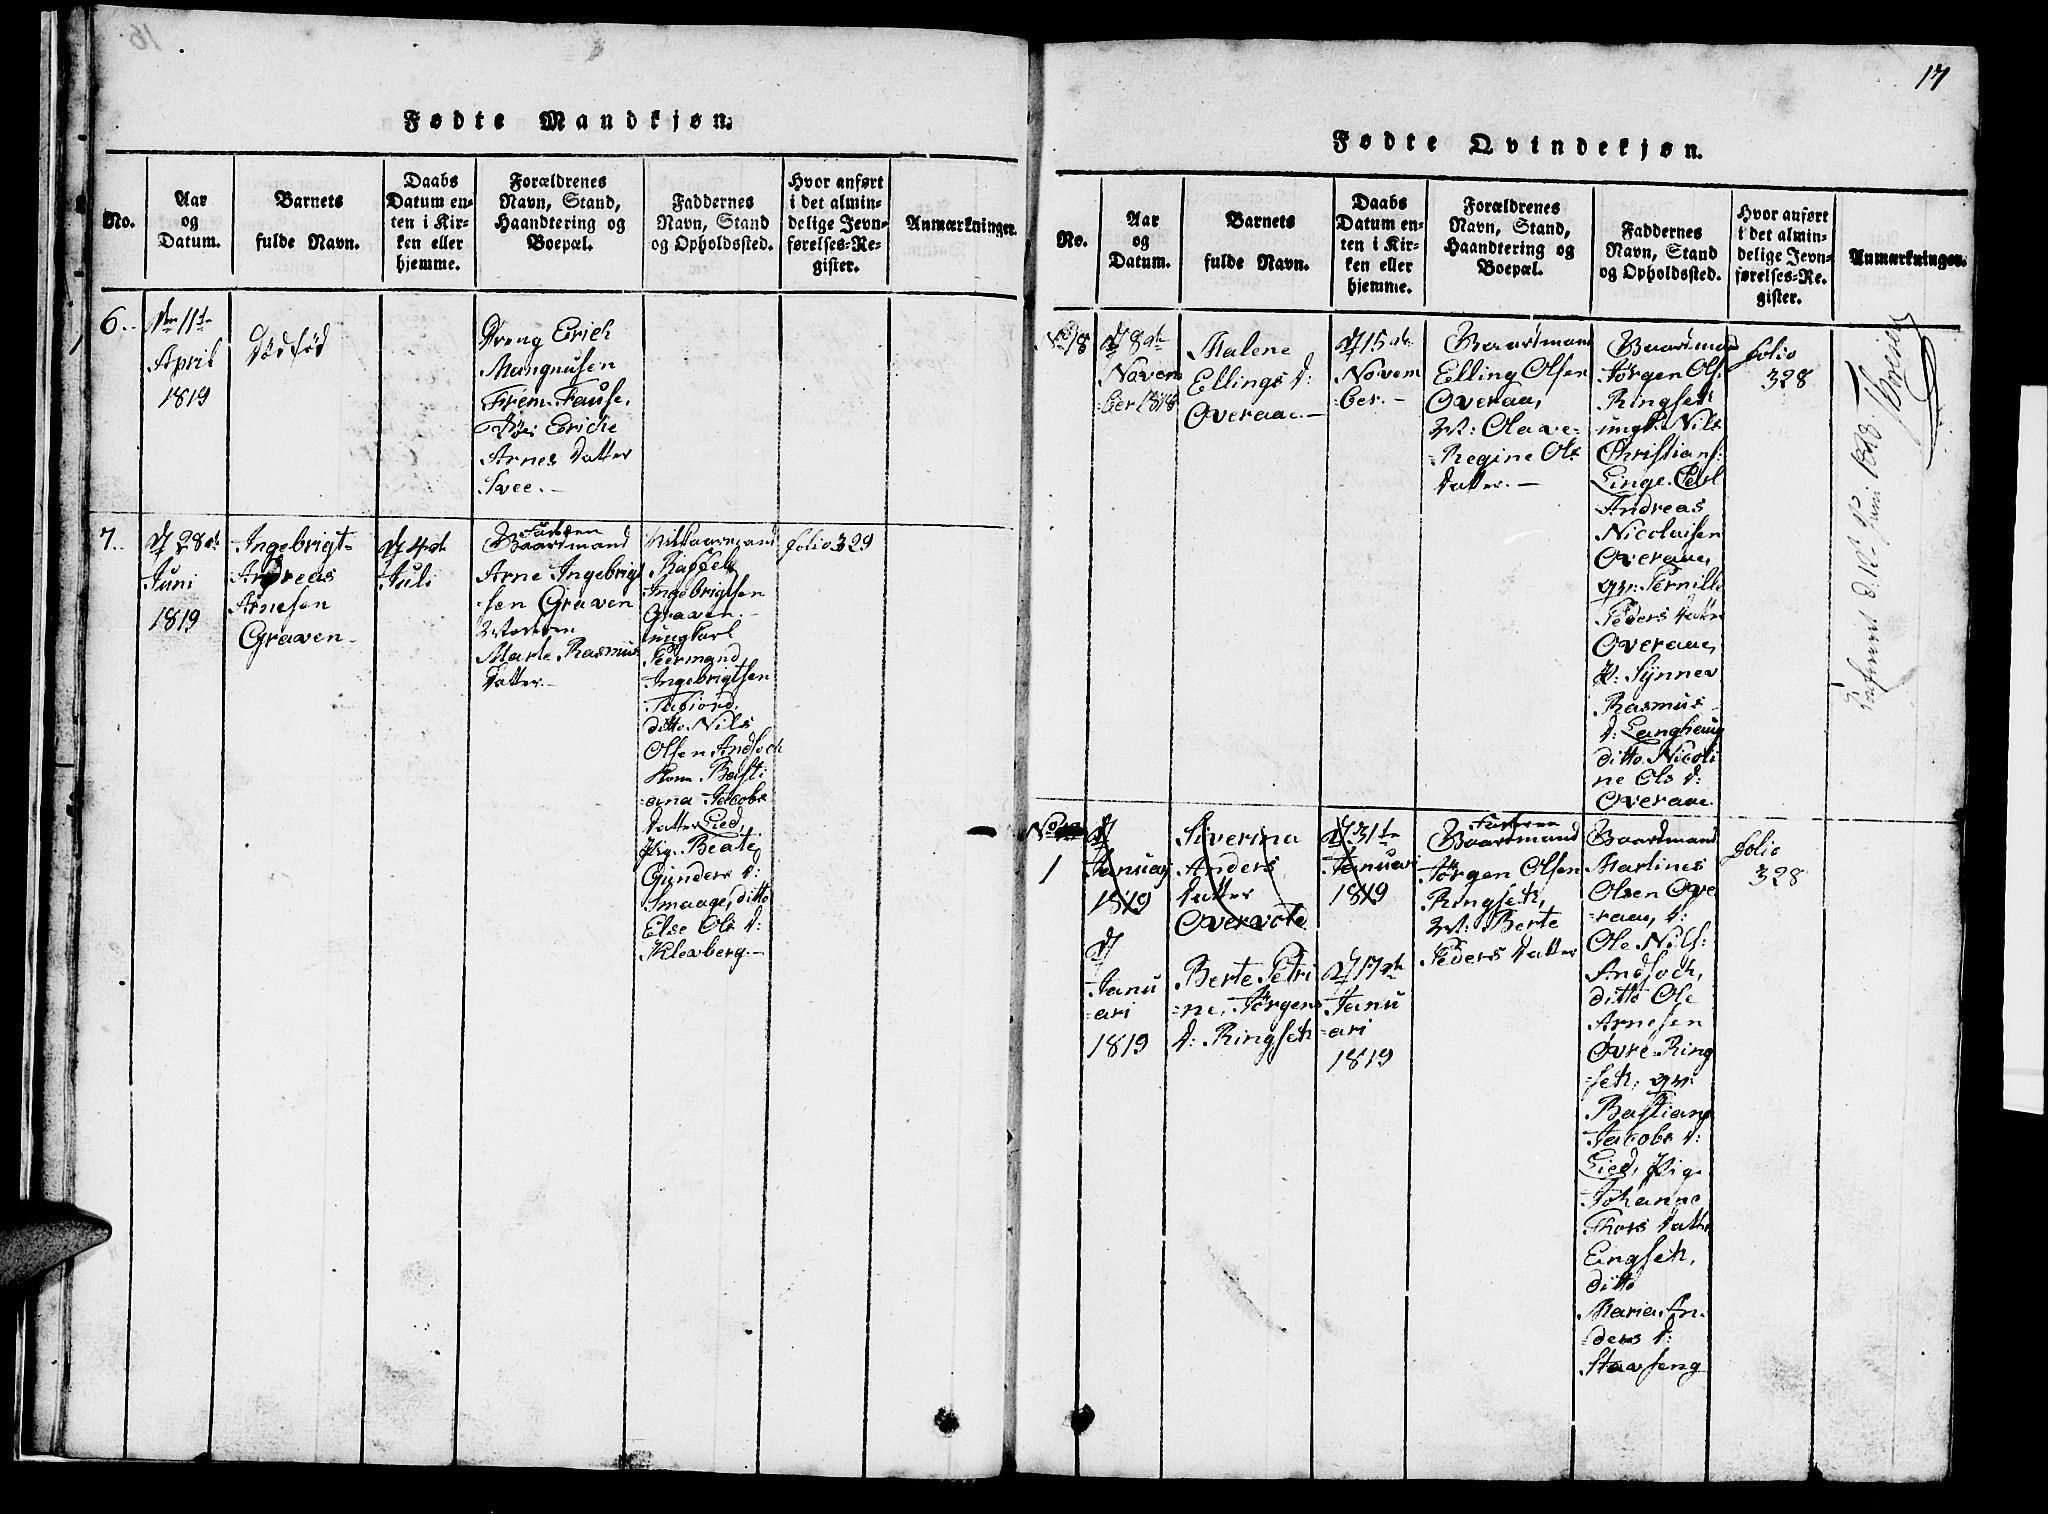 Fødte Mandkjøn.
No.
Aar
og
Datum.
Barnets
fulde Navn.
Daabs
Datum en-
ten i Kir-
ken eller
hjemme.
Forældrenes
Navn, Stand,
Haandtering og
Boepæl.
Faddernes
Navn, Stand
og Opholdssted.
Hvor anført
i det almin-
delige Jevn-
førelses-Re-
gister.
Anmærkninger.
6.
11te
April
1819
Dödföd
Dreng Erich
Mangnusen
Frem-Fause,
Eriche
Arnes Datter
Svee.-
7.
28de
Juni
1819
Ingebrigt-
Andreas
Arnesen
Graven-
4de
Juli
Faderen
Baardmand
Arne Ingebrigt
-sen Graven
Moderen
Marte Rasmus
Datter.-
Raffel
Ingebrigtsen
Graven.-
ungkarl
Peermand
Ingebrigtsen
Tafiord.
ditto Nils
Olsen Andsoch
Kone Basti
-ana Jacobs
Datter Lied,
Pig. Beate
Gunders D:
Smaage, ditto
Else Ols D:
Klovberg.-
folio 329
17
Fødte Qvindekjøn.
No.
Aar
og
Datum.
Barnets
fulde Navn.
Daabs
Datum en-
ten i Kir-
ken eller
hjemme.
Forældrenes
Navn, Stand,
Haandtering og
Boepæl.
Faddernes
Navn, Stand
og Opholdssted.
Hvor anført
i det almin-
delige Jevn-
førelses-Re-
gister.
Anmærkninger.
No 18
8de
Novem
-ber 1818
Malene
Ellings D:
Overaae.-
15de
Novem
-ber.-
Baardmand
Elling Olsen
Overaa,
M: Olave-
-Regine Ols
Datter.-
Baardmand
Jörgen Ols:
Ringseth
ungk. Nils
Christians:
Linge.
Andreas
Nicolaisen
Overaae,
Pernille
Peders Datter
Overaae,
P: Synnev
Rasmus-
D: Langhaug
ditto Nicoli
ne Ols D:
Overaae.
folio
328
1
Januari
1819
Janu
-ari
1819
Siverina
Anders
Datter
Overvole
Berte Petri
-ne, Jörgens
D: Ringseth
31te
Januari
1819
17de
Janu
-ari
1819
Faderen
Baardmand
Jörgen Olsen
Ringseth,
M: Berte
Peders Datter
Baardmand
Martines
Olsen Ove
-raae, D:
Ole Nils:
Andsoch,
ditto Ole
Arnesen
Övre-Ring
-seth,
Bastiana
Jacobs D:
Lied, Pig.
Johanne
Thors Datter
Engseth,
ditto
Maria An-
-ders D:
Stavseng
folio
328